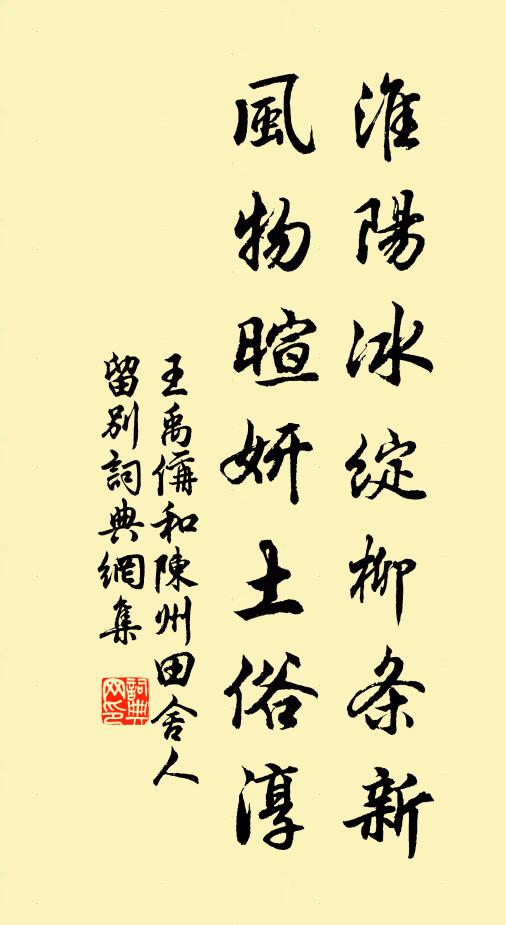 淮陽冰綻柳条新
風物暄妍土俗淳
王禹偁和陳州田舍人
留別詞典網集
詞典
网印